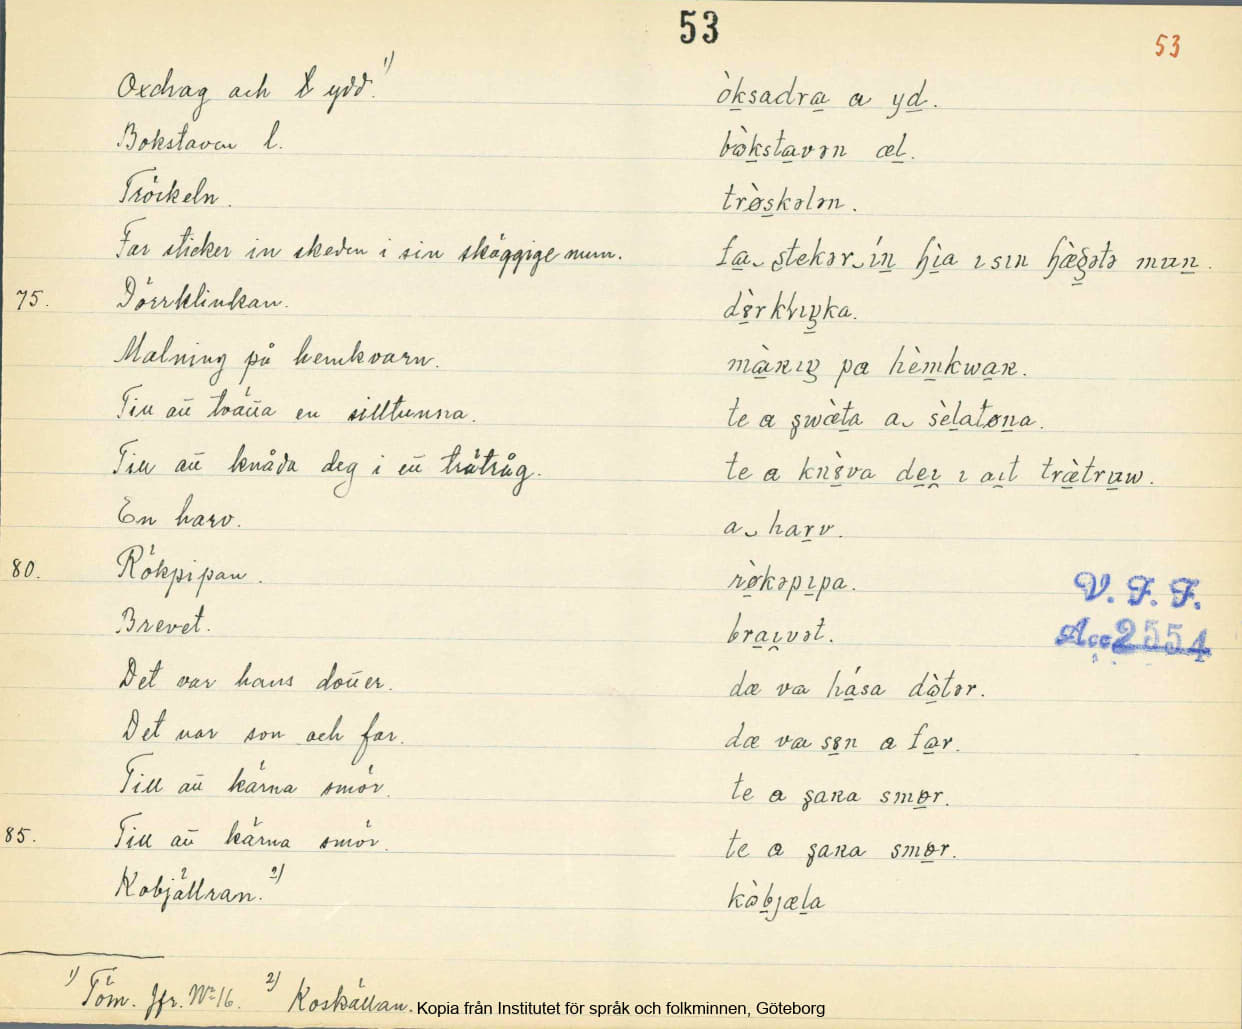 53
53
Oxdrag och ydd. 1) òksadra a yd.
Bokstaven l. bòkstavən æl.
Tröckeln. trø̀skələn.
Far sticker in skeden i sin skäggige mun. fa stekər ín hìa ı sın hæ̀ʂətə mun.
75. Dörrklinkan. dèrklıŋka.
Malning på hemkvarn. màʀıŋ pa hèmkwaʀ.
Till att tvätta en silltunna. te a ʂwæ̀ta a sèlatøna.
Till att knåda deg i ett tråtråg. te a knèva deı ı aıt træ̀truw.
En harv. a harv.
80. Rökpipan. rø̀kəpıpa.
Brevet. braıvət.
Det var hans dotter. dæ va hása dòtər.
Det var son och far. dæ va sɐn a far.
Till att kärna smör. te a ʂaʀa smør.
85. Till att kärna smör. te a ʂaʀa smør.
Kobjällran. 2) kòbjæla
1) Töm. Jfr. No 16. 2) Koskällan.
V. F. F.
Acc 2554
Kopia från Institutet för språk och folkminnen, Göteborg